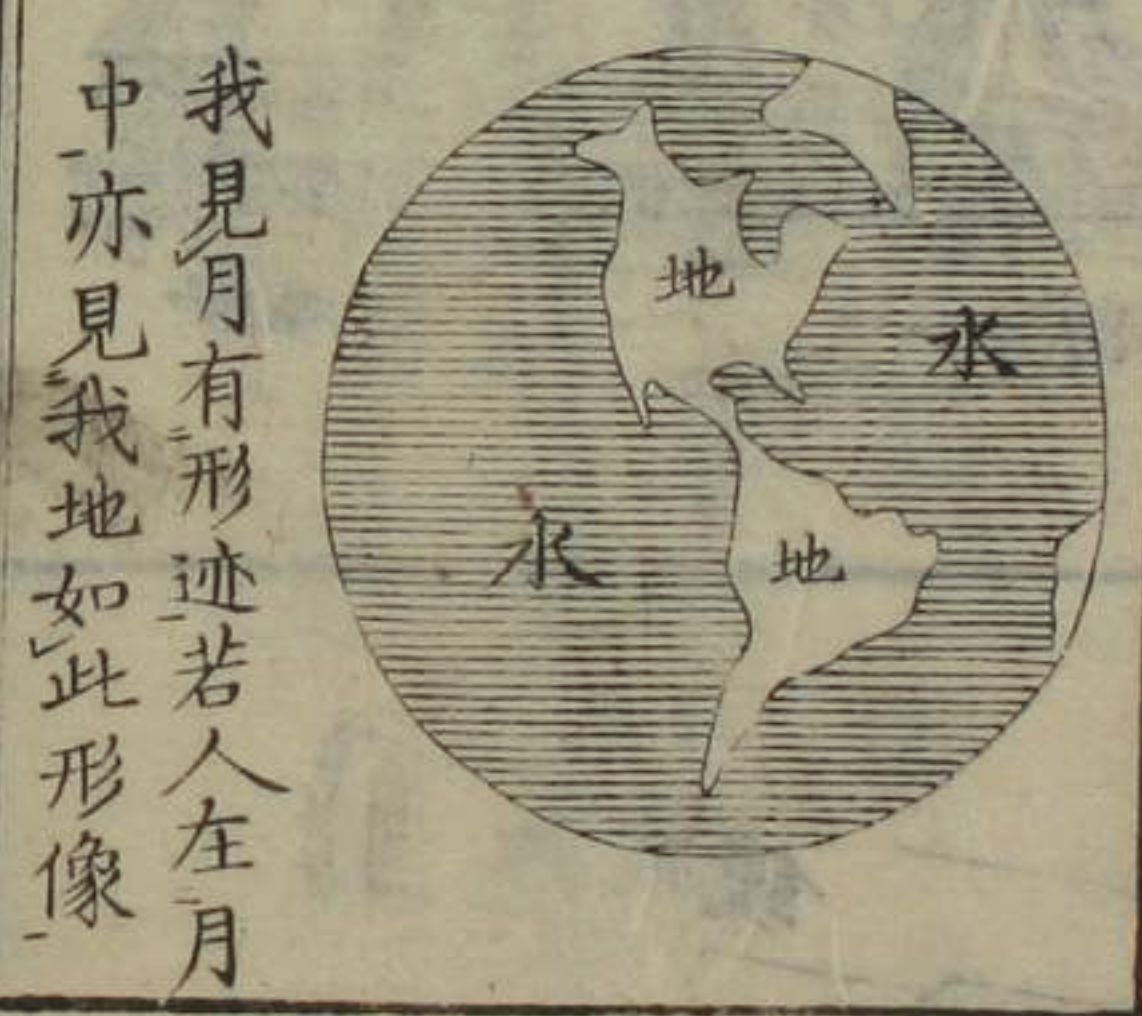 地
水
水
地
我見月有形迹若人在月
中亦見我地如此形像